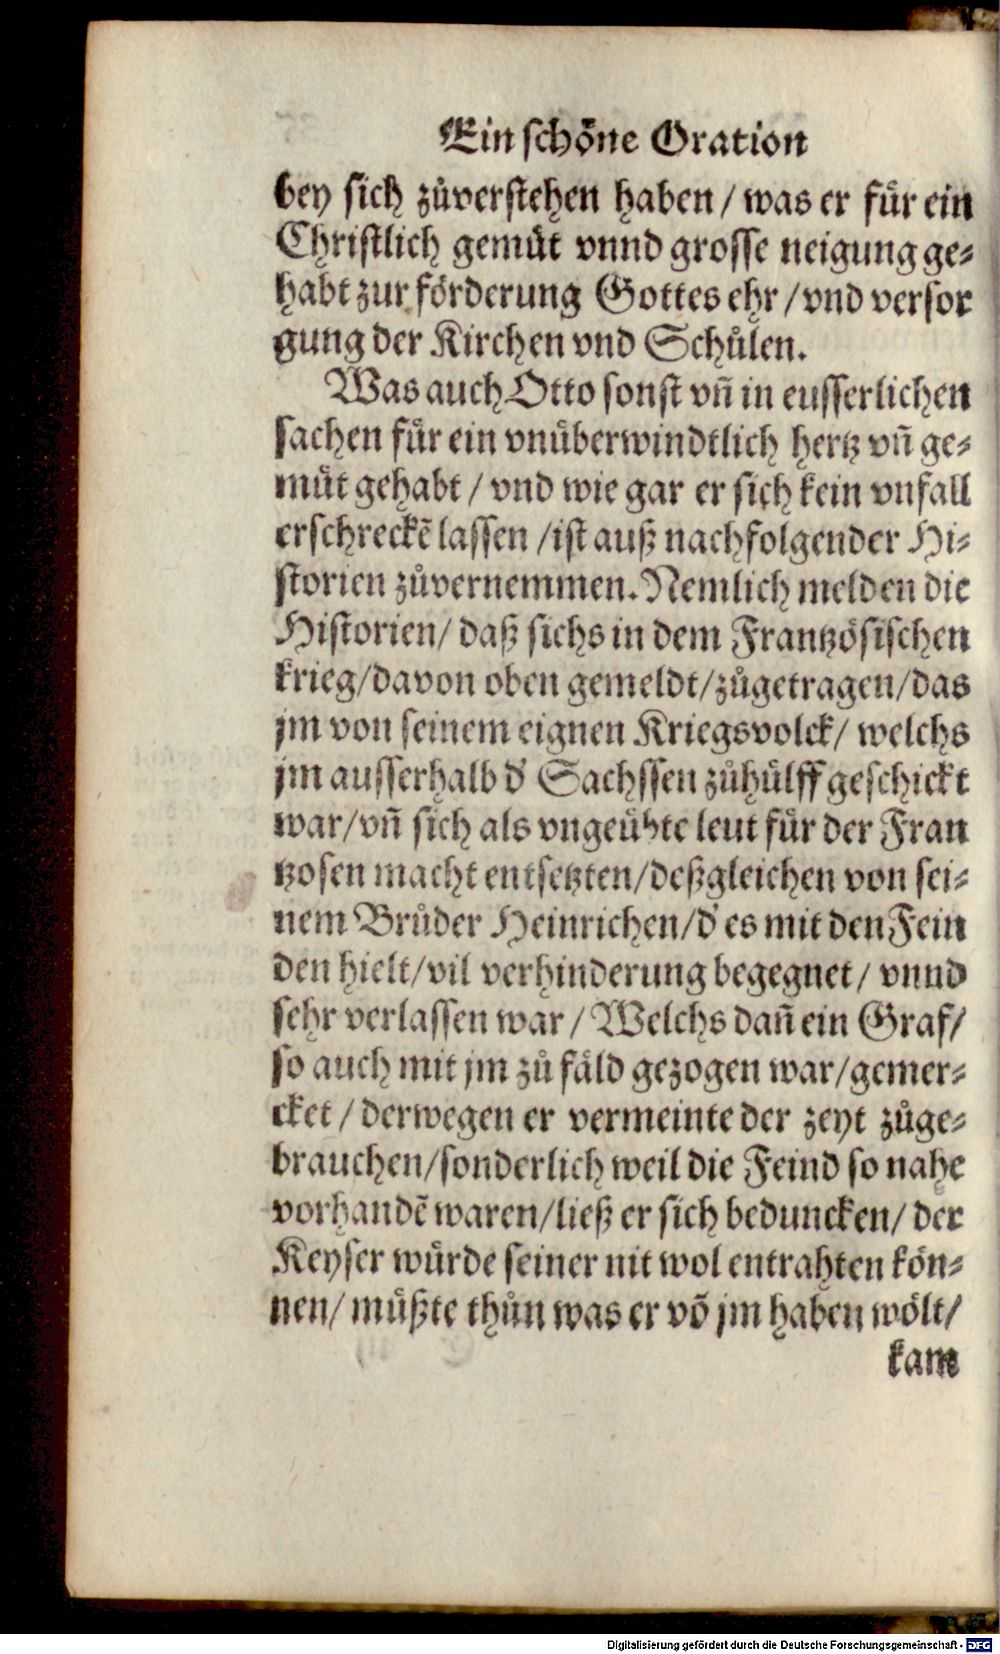 Ein schöne Oration
bey sich zůverstehen haben / was er für ein
Christlich gemüt vnnd grosse neigung ge-
habt zur förderung Gottes ehr / vnd versor
gung der Kirchen vnd Schůlen.
Was auch Otto sonst vñ in eusserlichen
sachen für ein vnüberwindtlich hertz vñ ge-
müt gehabt / vnd wie gar er sich kein vnfall
erschreckẽ lassen / ist auß nachfolgender Hi-
storien zůvernemmen. Nemlich melden die
Historien / daß sichs in dem Frantzösischen
krieg / davon oben gemeldt / zůgetragen / das
jm von seinem eignen Kriegsvolck / welchs
jm ausserhalb d' Sachssen zůhülff geschickt
war / vñ sich als vngeübte leut für der Fran
tzosen macht entsetzten / deßgleichen von sei-
nem Brůder Heinrichen / d' es mit den Fein
den hielt / vil verhinderung begegnet / vnnd
sehr verlassen war / Welchs dañ ein Graf /
so auch mit jm zů fäld gezogen war / gemer-
cket / derwegen er vermeinte der zeyt zůge-
brauchen / sonderlich weil die Feind so nahe
vorhandẽ waren / ließ er sich beduncken / der
Keyser würde seiner nit wol entrahten kön-
nen / müßte thůn was er võ jm haben wölt /
kam
Digitalisierung gefördert durch die Deutsche Forschungsgemeinschaft - DFG